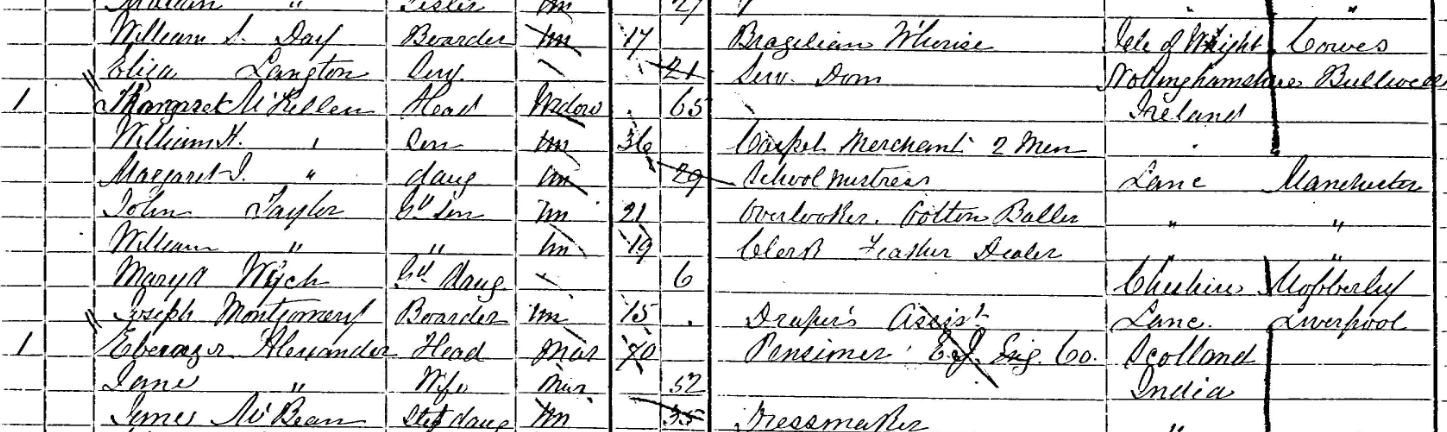 " Sister Un 27 " "
William S. Day Boarder Un 17 Brazilian W'house Isle of Wight Cowes
Eliza Langton Serv. 21 Serv. Dom Nottinghamshire Bullwell
1 Margaret McKellen Head Widow 65 Ireland
William H. " Son Un 36 Carpet Merchant 2 Men "
Margaret J. " daug Un 29 School mistress Lanc Manchester
John Taylor Gd Son Un 21 Overlooker. Cotton Baller " "
William " " Un 19 Clerk Feather Dealer "
Mary A Wych Gd Daug 6 Cheshire Mobberley
Joseph Montgomery Boarder Un 15 Draper's Assist Lanc. Liverpool
1 Ebenezer Alexander Head Mar 70 Pensioner Co. Scotland
Jane " Wife Mar 52 India
McBean Step daug Un 35 Dressmaker "